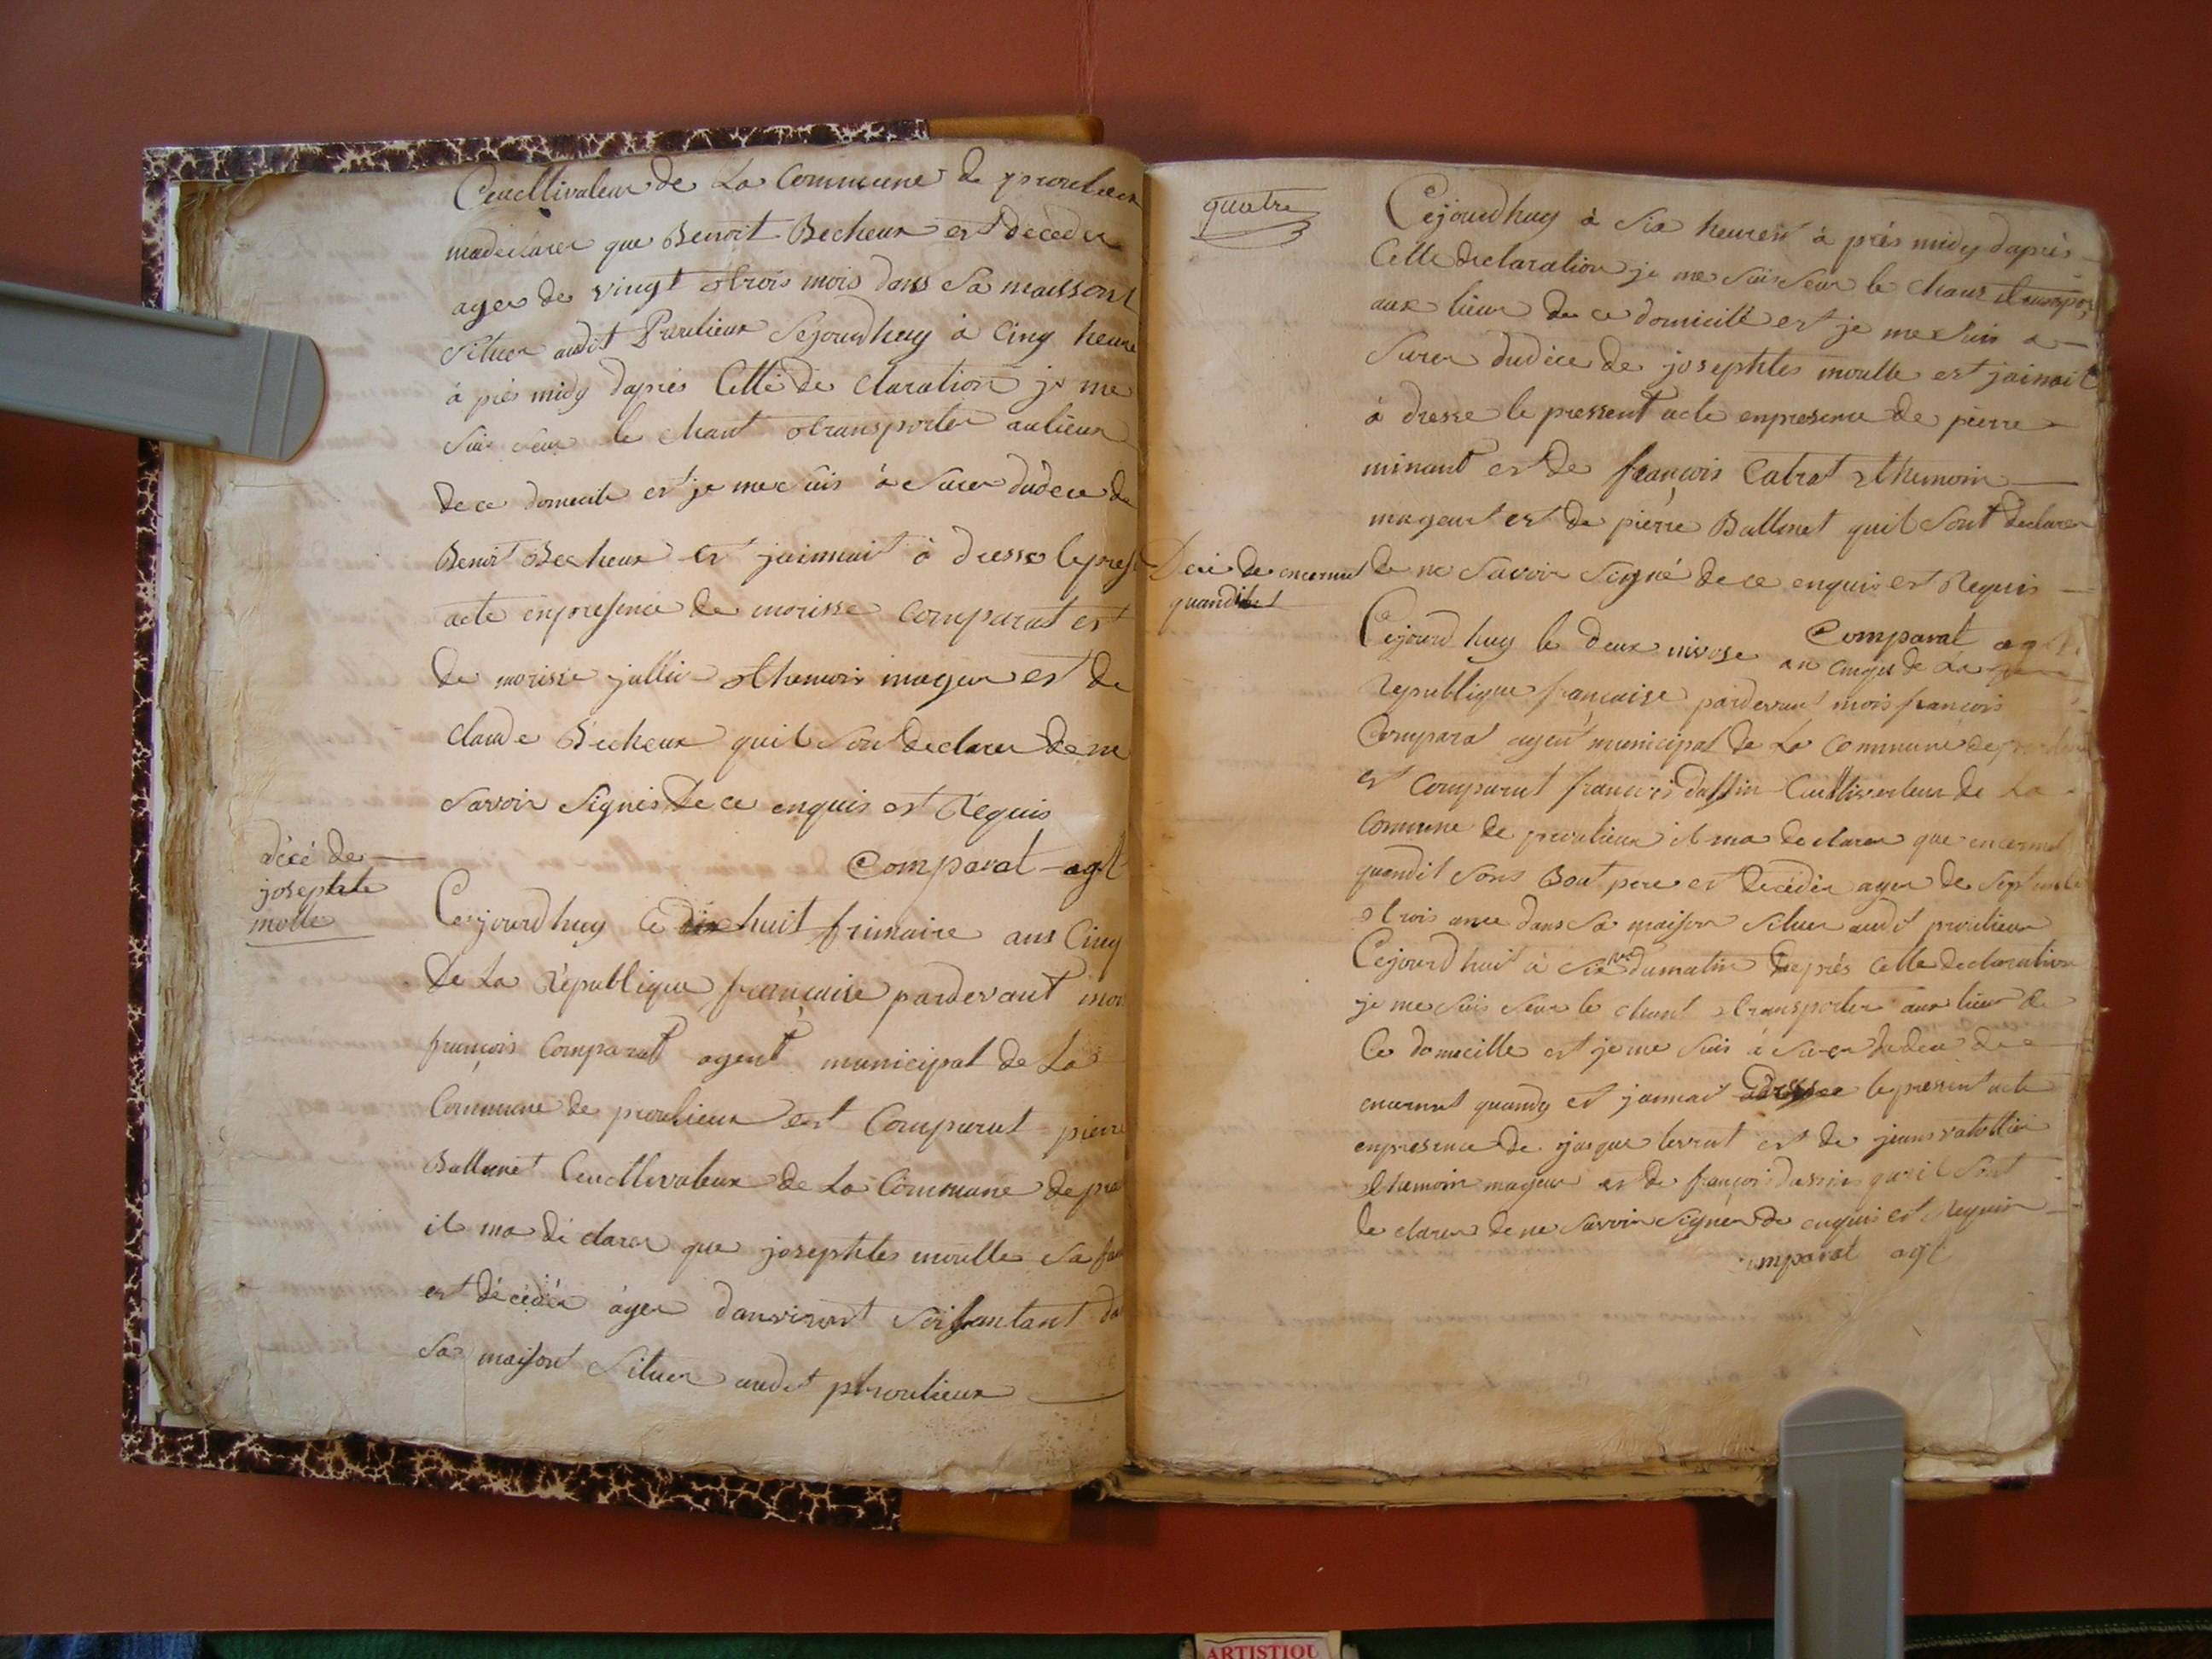 Ceuclivateur de La Commune de proulieux
madeclarer que Benoit Becheux est deceder
ager de vingt trois mois dans Sa maisson
Situer audit Prouilieux Sejourdhuy à Cinq heure
à près midy daprès Cette de claration je me
Suis Seur le Chant transporter aulieux
de ce domicile est je me Suis à Surer dudece de
Benoit Becheux est jainnait à dresse lepres
acte enpresence de morisse comparat est
de morisse jullin themoin mageur est de
claude Becheux quil Sont declarer de ne
Savoir Signés de ce enquis est Requis
Comparat agt
décé de
josephte
molle
Cejourdhuy Ce dix huit frimaire ans Cinq
de La République française pardevant moi
françois Comparat agent municipal de La
Commune de proulieux est Comparut pierre
Ballunet Ceucllivateur de La Commune de prou
il ma dé clarer que josephtes moulle Sa fa
est décédér àger danviront Soissantant da
Sa maisont Situer audit phroulieux
quatre
Cejourdhuy à Six heurest à près midy daprès
Cette declaration je me Suis Seur le Chant transpor
aux lieux de ce domicille est je me Suis a
Surer dudèce de josephtes moulle est jainait
à dresse le pressent acte enpresence de pierre
minant est de françois Cabrat themoin
mageurt est de pierre Ballunet quil Sont declarer
de ne Savoir Signé de ce enquis est Requis
Comparat agt
Décé de encermet
quandit
Cejourd huy le deux nivose an Cinque de La
Republique françaisse pardevant mois francois
Comparat agent municipal de La Commune de proulieux
est Comparut francois dassin Cultiverteur de La
Commune de proulieux il ma declarer que encermet
quandit Sons Bout pere est decéder ager de Septante
trois ance dans Sa maison Situer audit proulieux
Cejourdhuit à Six hre dumatin daprès Cette declaration
je me Suis Seur le Chant transporter aux lieux de
Ce domicille est je me Suis à Surer dudece de
encermet quandy est jannait adresse le present acte
enpresence de jaque levrat est de jeans
themoin mageur est de françois dassin quil Sont
de clarer de ne Savoir Signer de enquis est Requis
omparat agt
ARTISTIQU